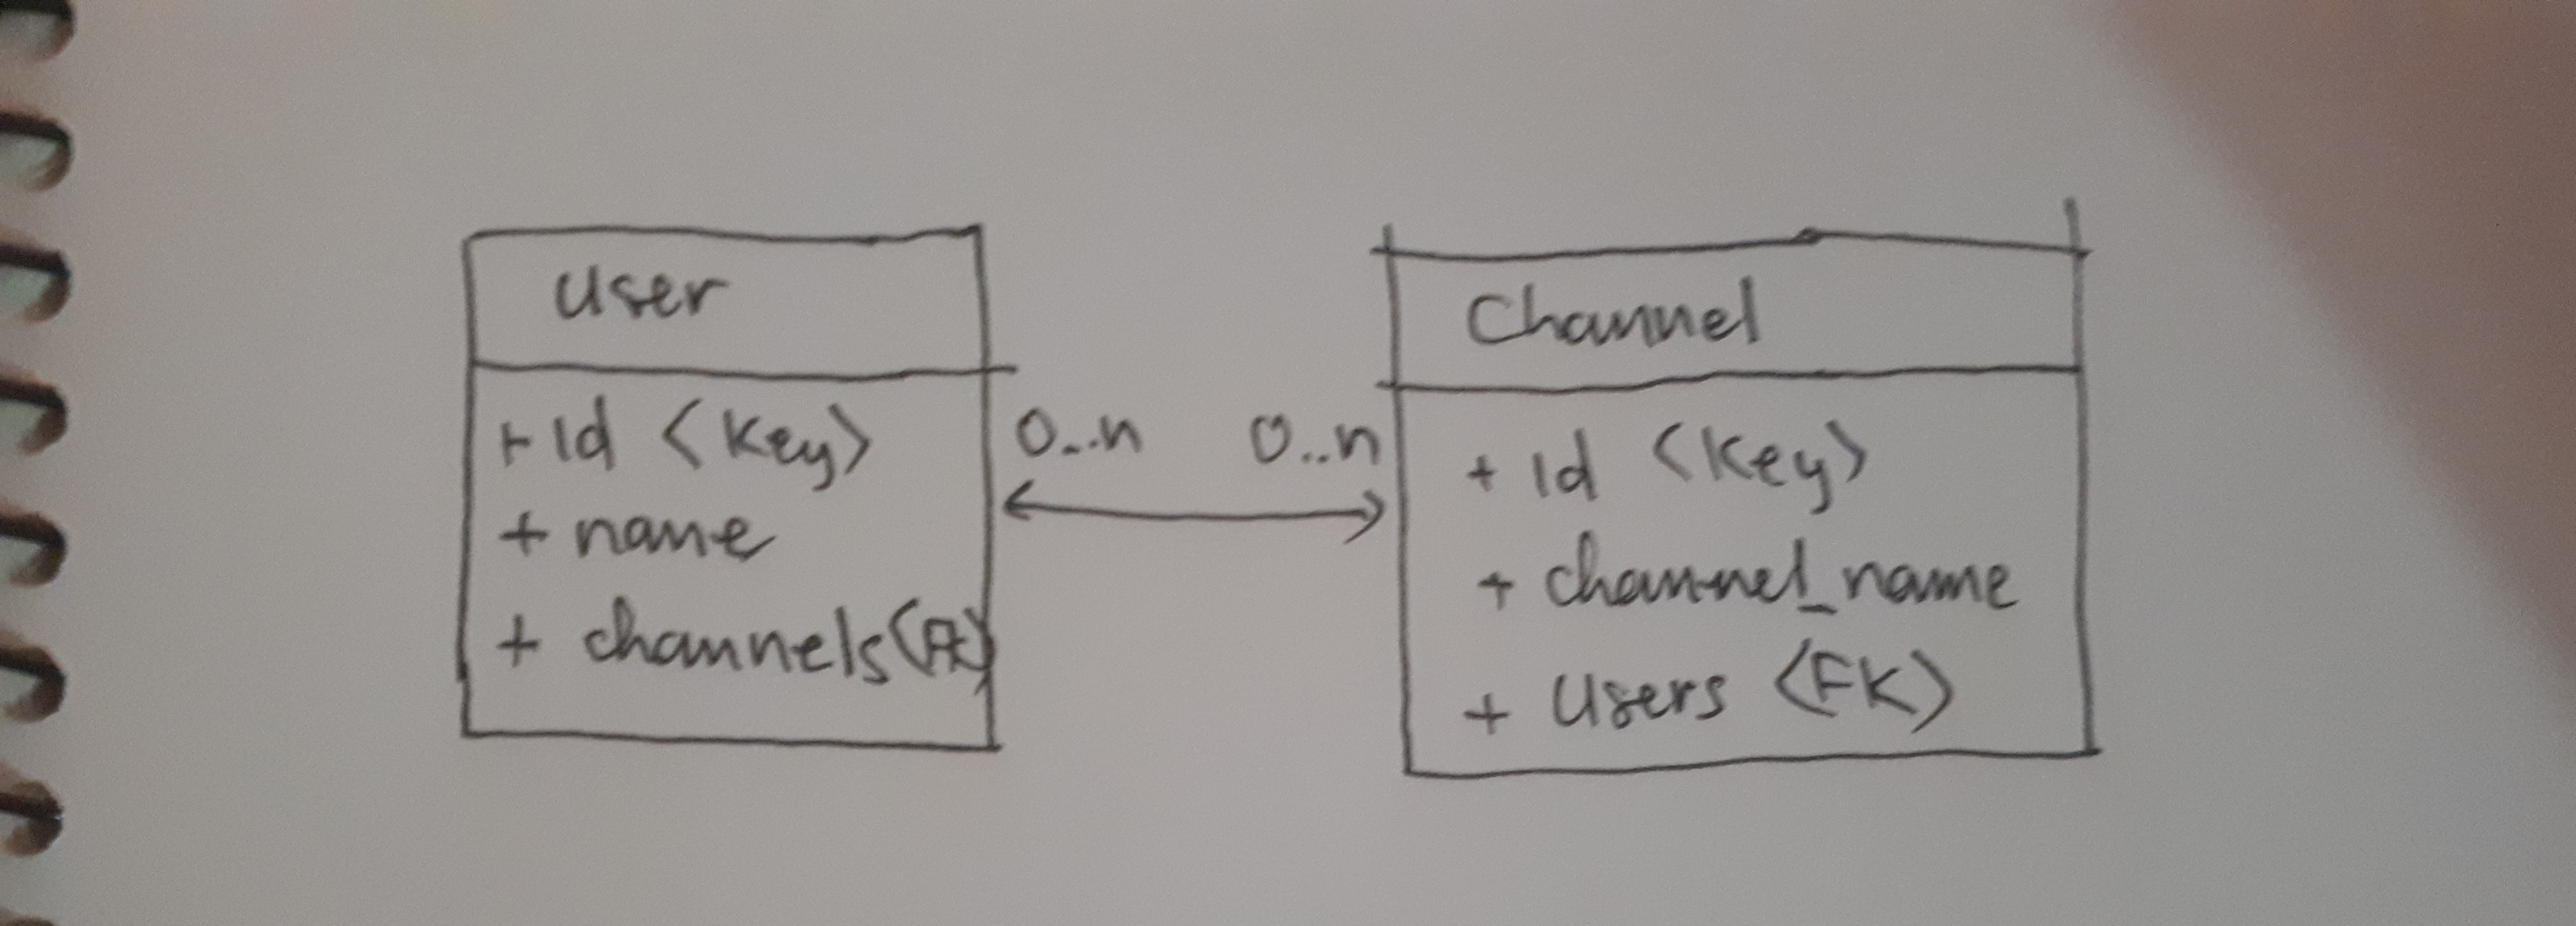 User
+ Id <Key>
+ name
+ channels(FK)
0..n
0..n
Channel
+ Id <Key>
+ channel_name
+ Users <FK>